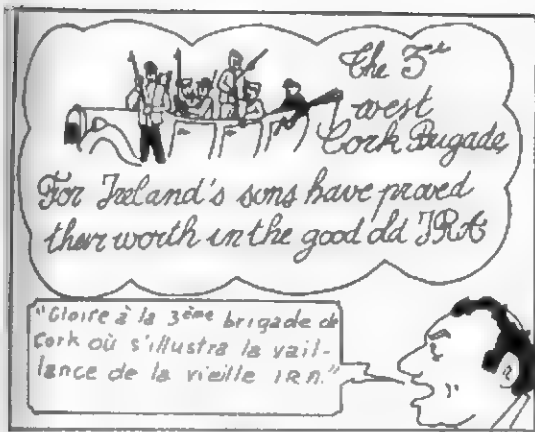 The 3rd
west
Cork Brigade,
For Ireland's sons have proved
their worth in the good old IRA
"Gloire à la 3ème brigade de
Cork où s'illustra la vail-
lance de la vieille IRA."